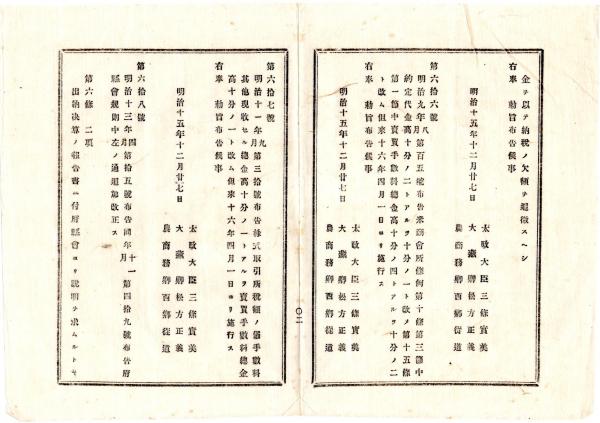 金ヲ以テ納税ノ欠額ヲ追徴スヘシ
右奉　勅旨布告候事
明治十五年十二月廿七日
太政大臣三條實美
大藏卿松方正義
農商務卿西郷従道
第六拾六號
明治九年八月第百五號布告米商會所條例第十條第三節中
約定代金高十分ノ二トアルヲ十分ノ一ト改メ第十五條
第一節中賣買手數料總金高十分ノ四トアルヲ十分ノ二
ト改ム但來十六年四月一日ヨリ施行ス
右奉　勅旨布告候事
明治十五年十二月廿七日
太政大臣三條實美
大藏卿松方正義
農商務卿西郷従道
二〇
第六拾七號
明治十一年九月第三拾號布告株式取引所税額ノ儀手數料
其他現收セル總金高十分ノ一トアルヲ賣買手數料總金
高十分ノ一ト改ム但來十六年四月一日ヨリ施行ス
右奉　勅旨布告候事
明治十五年十二月廿七日
太政大臣三條實美
大藏卿松方正義
農商務卿西郷従道
第六拾八號
明治十三年四月第拾五號布告同年十一月第四拾九號布告府
縣會規則中左ノ通追加改正ス
第六條　二項
出納決算ノ報告書ニ付府縣會ヨリ説明ヲ求ムルトキ